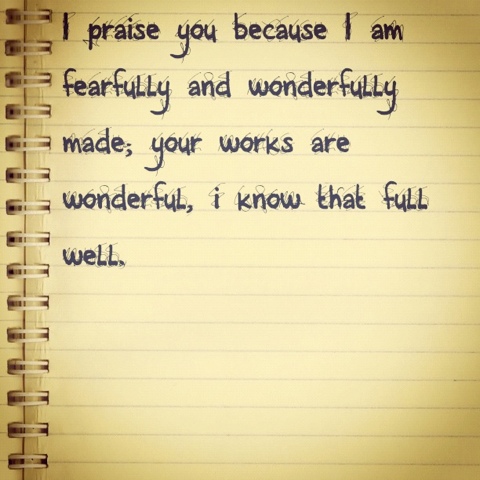 I praise you because I am
fearfully and wonderfully
made; your works are
wonderful, i know that full
well.